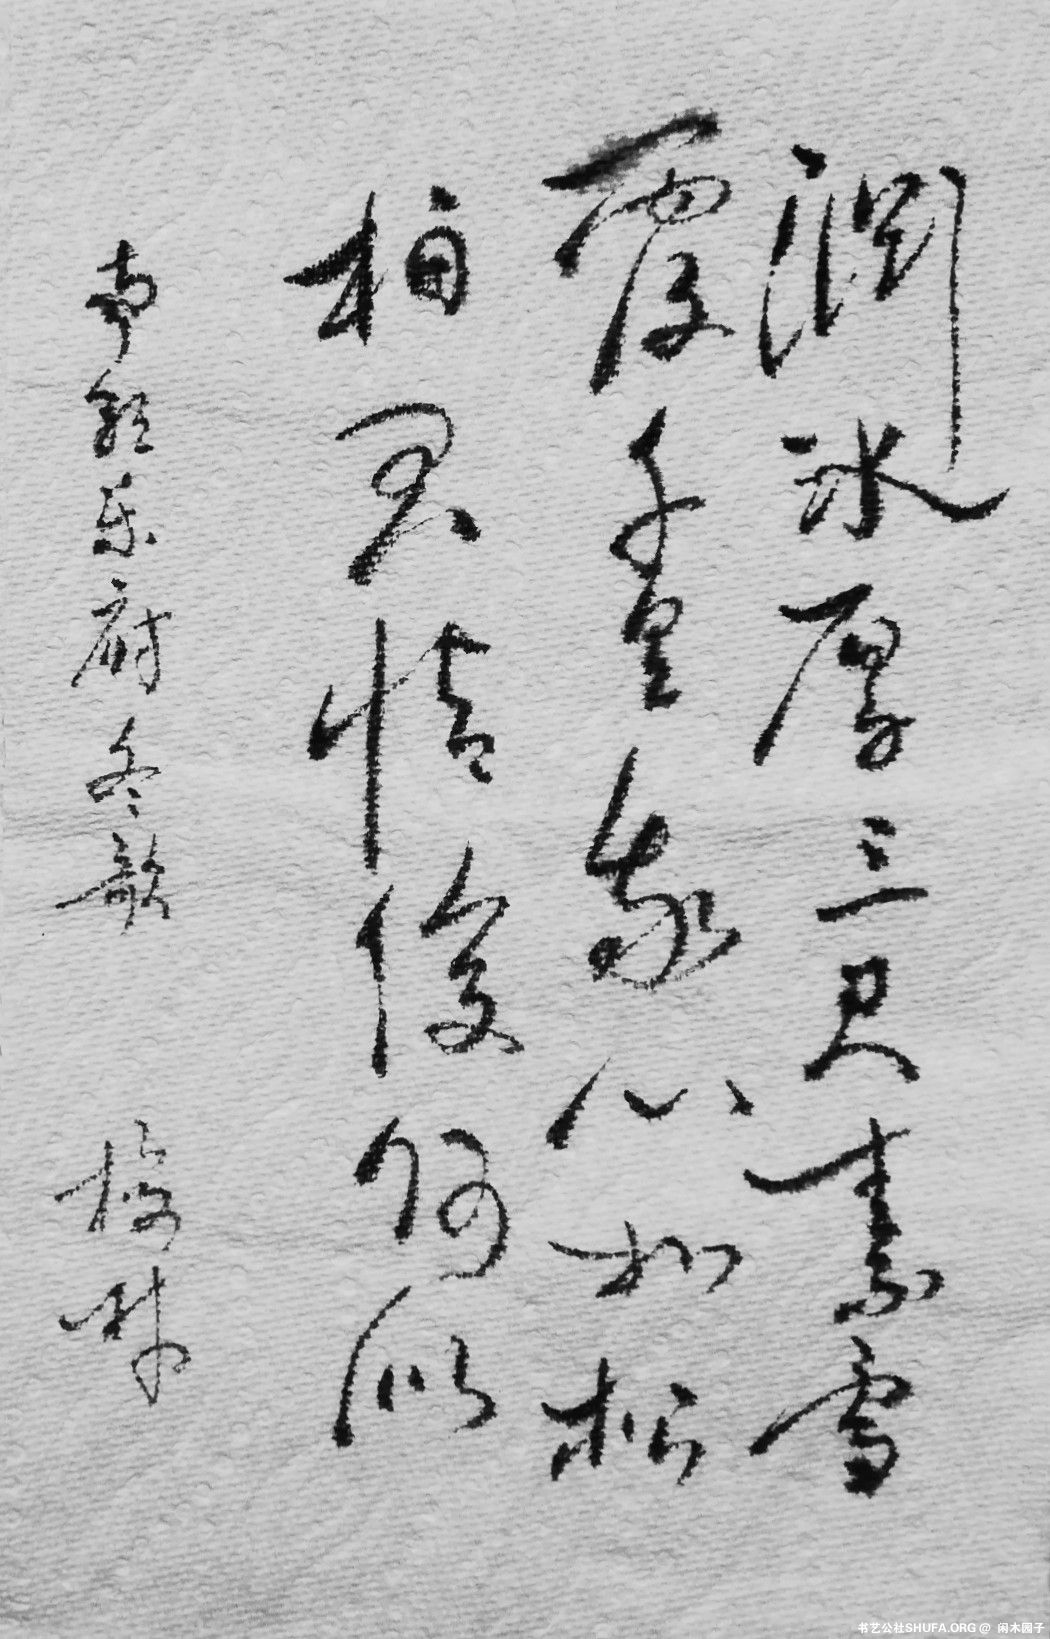 涧冰厚三尺素雪
覆千里我心如松
柏君情復何似
南朝乐府冬歌
书艺公社SHUFA.ORG @ 闲木园子